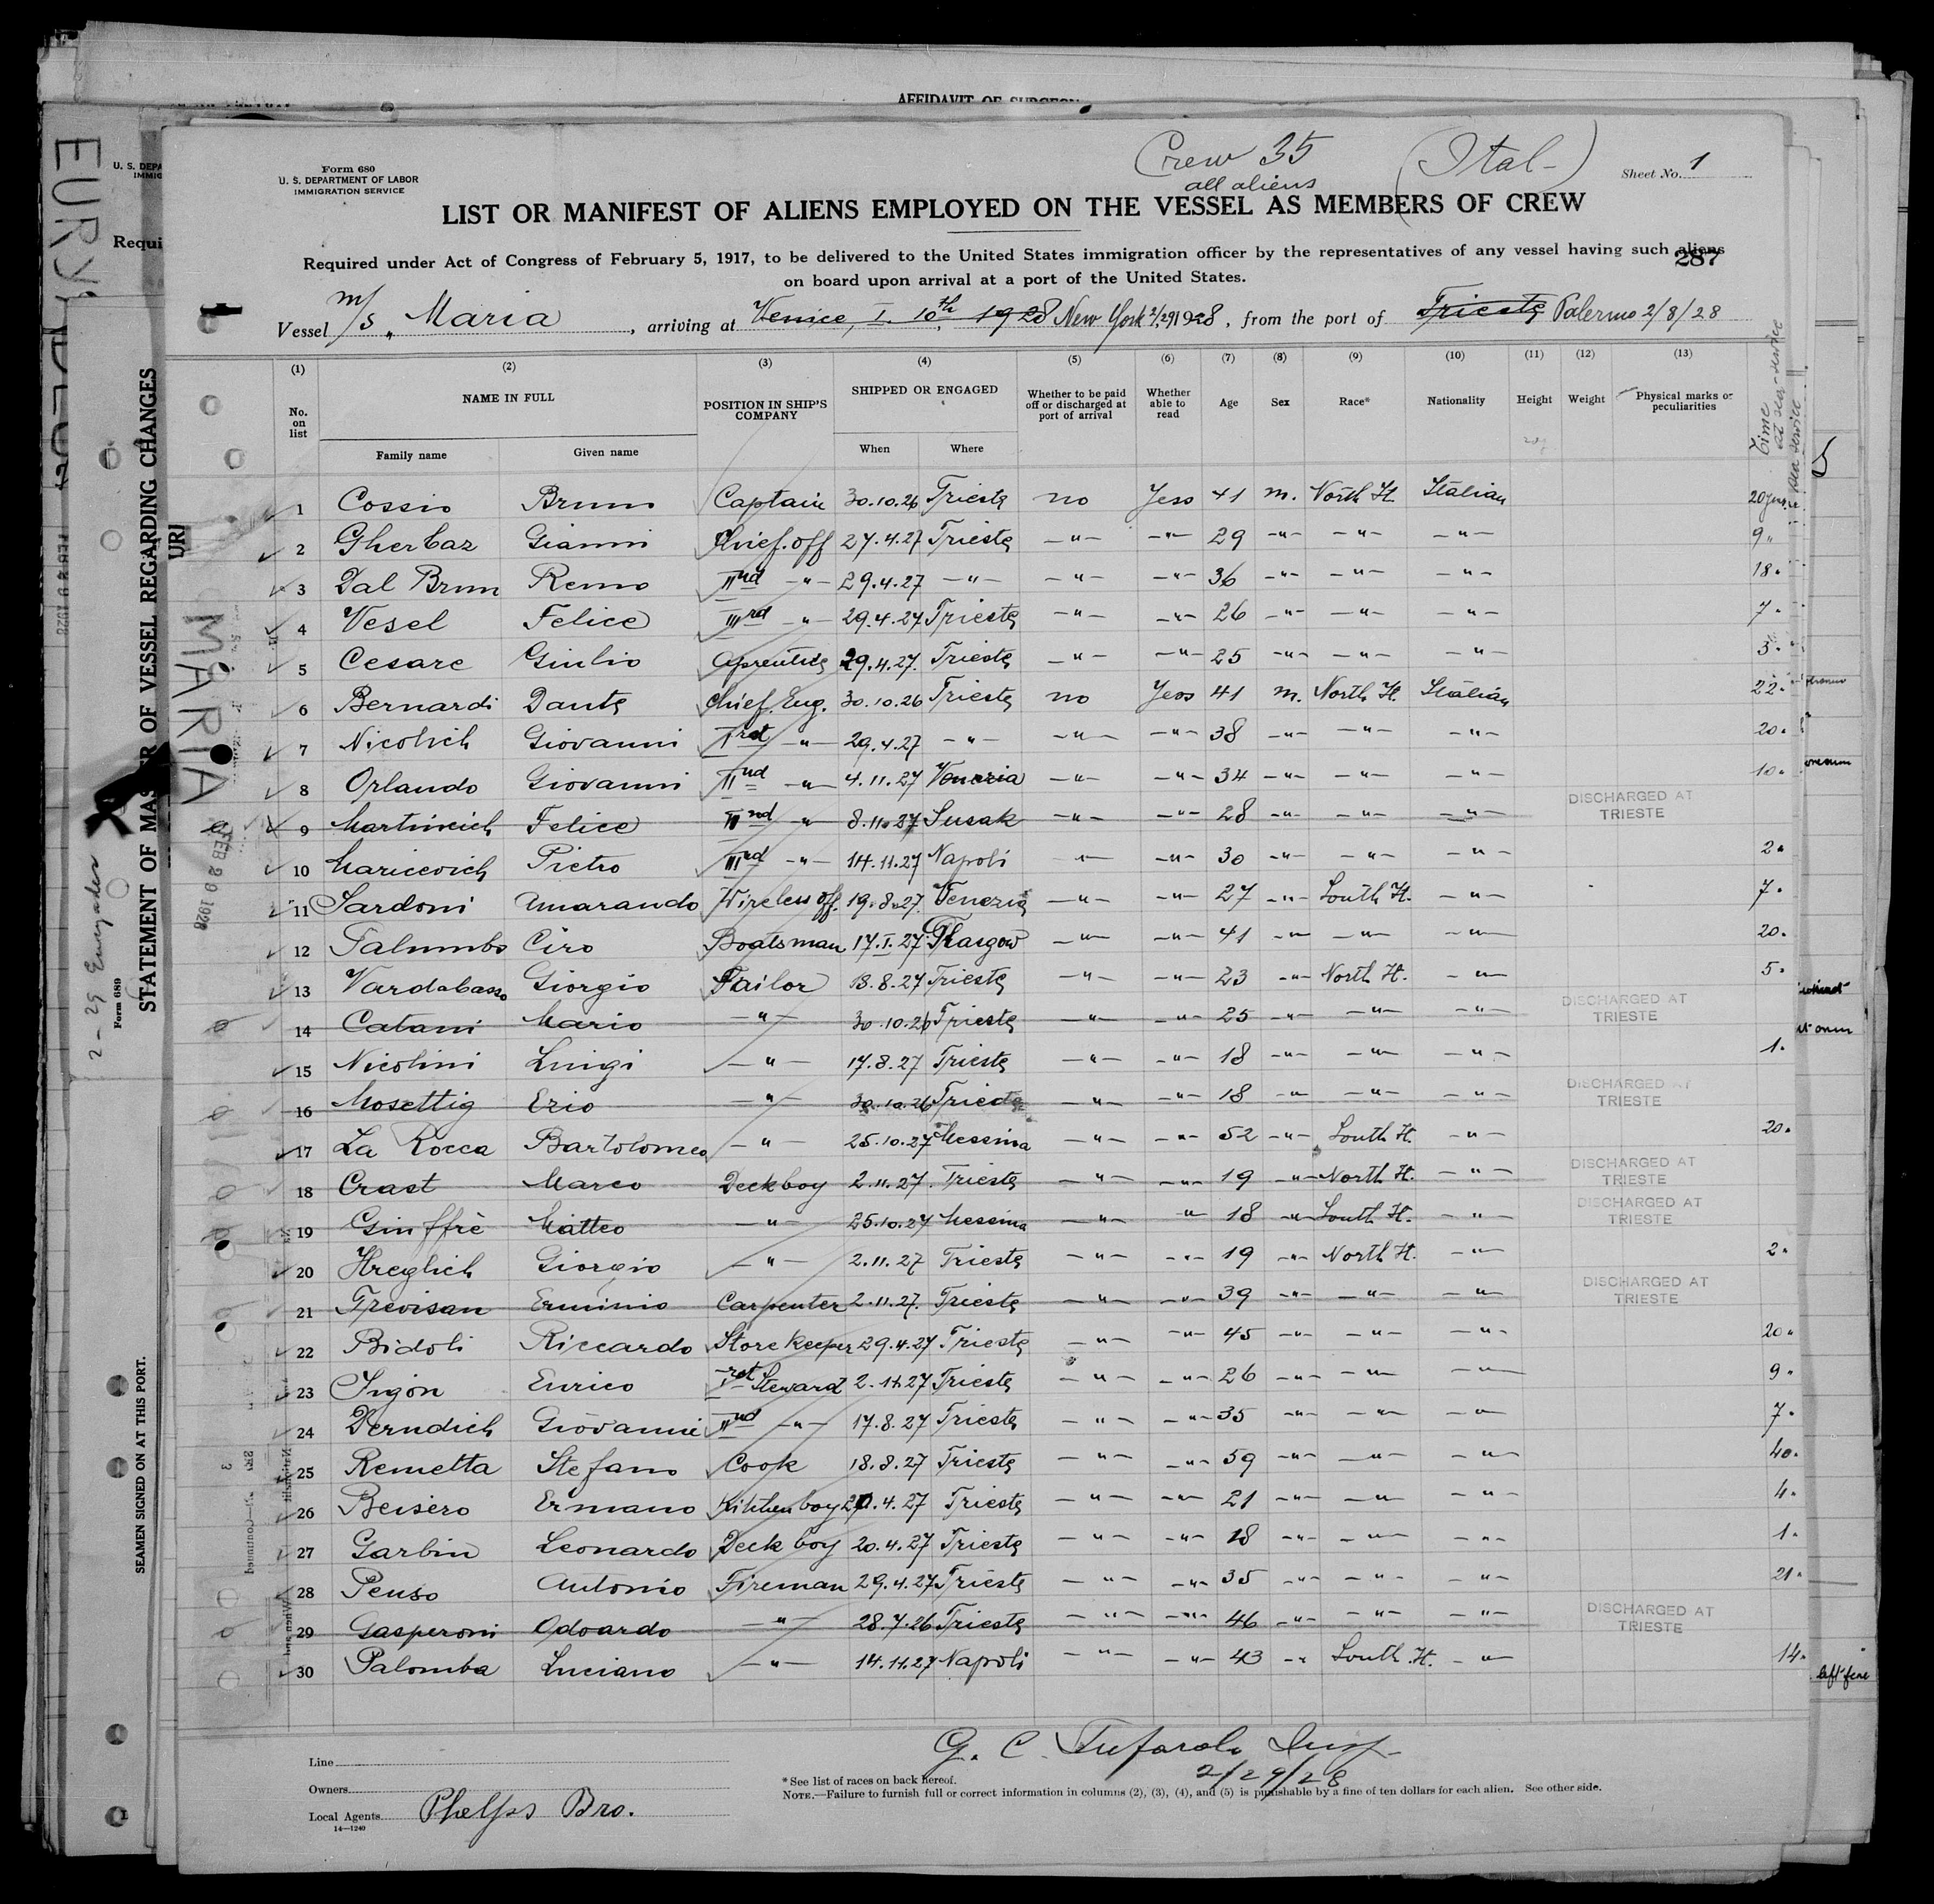 AFFIDAVIT OF SURGEON
Crew 35
all aliens
(Ital-)
Form 680
U. S. DEPARTMENT OF LABOR
IMMIGRATION SERVICE
Sheet No. 1
LIST OR MANIFEST OF ALIENS EMPLOYED ON THE VESSEL AS MEMBERS OF CREW
Required under Act of Congress of February 5, 1917, to be delivered to the United States immigration officer by the representatives of any vessel having such aliens
287
on board upon arrival at a port of the United States.
Vessel m/s „ Maria , arriving at Venice, I. 10th 1928 New York 2/29/1928, from the port of Trieste Palermo 2/8/28
(1) (2) (3) (4) (5) (6) (7) (8) (9) (10) (11) (12) (13)
No. on list NAME IN FULL POSITION IN SHIP'S COMPANY SHIPPED OR ENGAGED Whether to be paid off or discharged at port of arrival Whether able to read Age Sex Race* Nationality Height Weight Physical marks or peculiarities Time at sea-service
Family name Given name When Where
1 Cossio Bruno Captain 30.10.26 Trieste no Yess 41 m. North It. Italian 20 yrs.
2 Gherbaz Gianni Chief. off 27.4.27 Trieste -"- -"- 29 -"- -"- -"- 9 "
3 Dal Brun Remo IInd -"- 29.4.27 -"- -"- -"- 36 -"- -"- -"- 18 "
4 Vesel Felice IIIrd -"- 29.4.27 Trieste -"- -"- 26 -"- -"- -"- 7 "
5 Cesare Giulio Aprentice 29.4.27. Trieste -"- -"- 25 -"- -"- -"- 3 "
6 Bernardi Dante Chief. Eng. 30.10.26 Trieste no Yess 41 m. North It. Italian 22 "
7 Nicolich Giovanni Irst -"- 29.4.27 -"- -"- -"- 38 -"- -"- -"- 20 "
8 Orlando Giovanni IInd -"- 4.11.27 Venezia -"- -"- 34 -"- -"- -"- 10 "
9 Martincich Felice IInd -"- 8.11.27 Susak -"- -"- 28 -"- -"- -"- DISCHARGED AT TRIESTE
10 Maricevich Pietro IIInd -"- 14.11.27 Napoli -"- -"- 30 -"- -"- -"- 2 "
11 Sardoni Amarando Wireless off. 19.8.27. Venezia -"- -"- 27 -"- South It. -"- 7 "
12 Palumbo Ciro Boatsman 17.I.27. Glasgow -"- -"- 41 -"- -"- -"- 20 "
13 Vardabasso Giorgio Sailor 18.8.27 Trieste -"- -"- 23 -"- North It. -"- 5 "
14 Catani Mario -"- 30.10.26 Trieste -"- -"- 25 -"- -"- -"- DISCHARGED AT TRIESTE
15 Nicolini Luigi -"- 17.8.27 Trieste -"- -"- 18 -"- -"- -"- 1 "
16 Mosettig Erio -"- 30.10.26 Trieste -"- -"- 18 -"- -"- -"- DISCHARGED AT TRIESTE
17 La Rocca Bartolomeo -"- 25.10.27 Messina -"- -"- 52 -"- South It. -"- 20 "
18 Crast Marco Deckboy 2.11.27. Trieste -"- -"- 19 -"- North It. -"- DISCHARGED AT TRIESTE
19 Giuffrè Matteo -"- 25.10.27 Messina -"- -"- 18 -"- South It. -"- DISCHARGED AT TRIESTE
20 Hreglich Giorgio -"- 2.11.27 Trieste -"- -"- 19 -"- North It. -"- 2 "
21 Trevisan Erminio Carpenter 2.11.27. Trieste -"- -"- 39 -"- -"- -"- DISCHARGED AT TRIESTE
22 Bidoli Riccardo Storekeeper 29.4.27 Trieste -"- -"- 45 -"- -"- -"- 20 "
23 Sigon Enrico Irst Steward 2.11.27 Trieste -"- -"- 26 -"- -"- -"- 9 "
24 Derndich Giovanni IInd -"- 17.8.27 Trieste -"- -"- 35 -"- -"- -"- 7 "
25 Remetta Stefano Cook 18.8.27 Trieste -"- -"- 59 -"- -"- -"- 40 "
26 Beisero Ermano Kitchenboy 20.4.27 Trieste -"- -"- 21 -"- -"- -"- 4 "
27 Garbin Leonardo Deck boy 20.4.27 Trieste -"- -"- 18 -"- -"- -"- 1 "
28 Penso Antonio Fireman 29.4.27 Trieste -"- -"- 35 -"- -"- -"- 21 "
29 Gasperoni Odoardo -"- 28.7.26 Trieste -"- -"- 46 -"- -"- -"- DISCHARGED AT TRIESTE
30 Palomba Luciano -"- 14.11.27 Napoli -"- -"- 43 -"- South It. -"- 14 "
Line
Owners
Local Agents Phelps Bro.
14—1240
G. C. Tufarolo Insp.
2/29/28
*See list of races on back hereof.
NOTE.—Failure to furnish full or correct information in columns (2), (3), (4), and (5) is punishable by a fine of ten dollars for each alien. See other side.
STATEMENT OF MASTER OF VESSEL REGARDING CHANGES
SEAMEN SIGNED ON AT THIS PORT.
Form 689
MARIA
FEB 29 1928